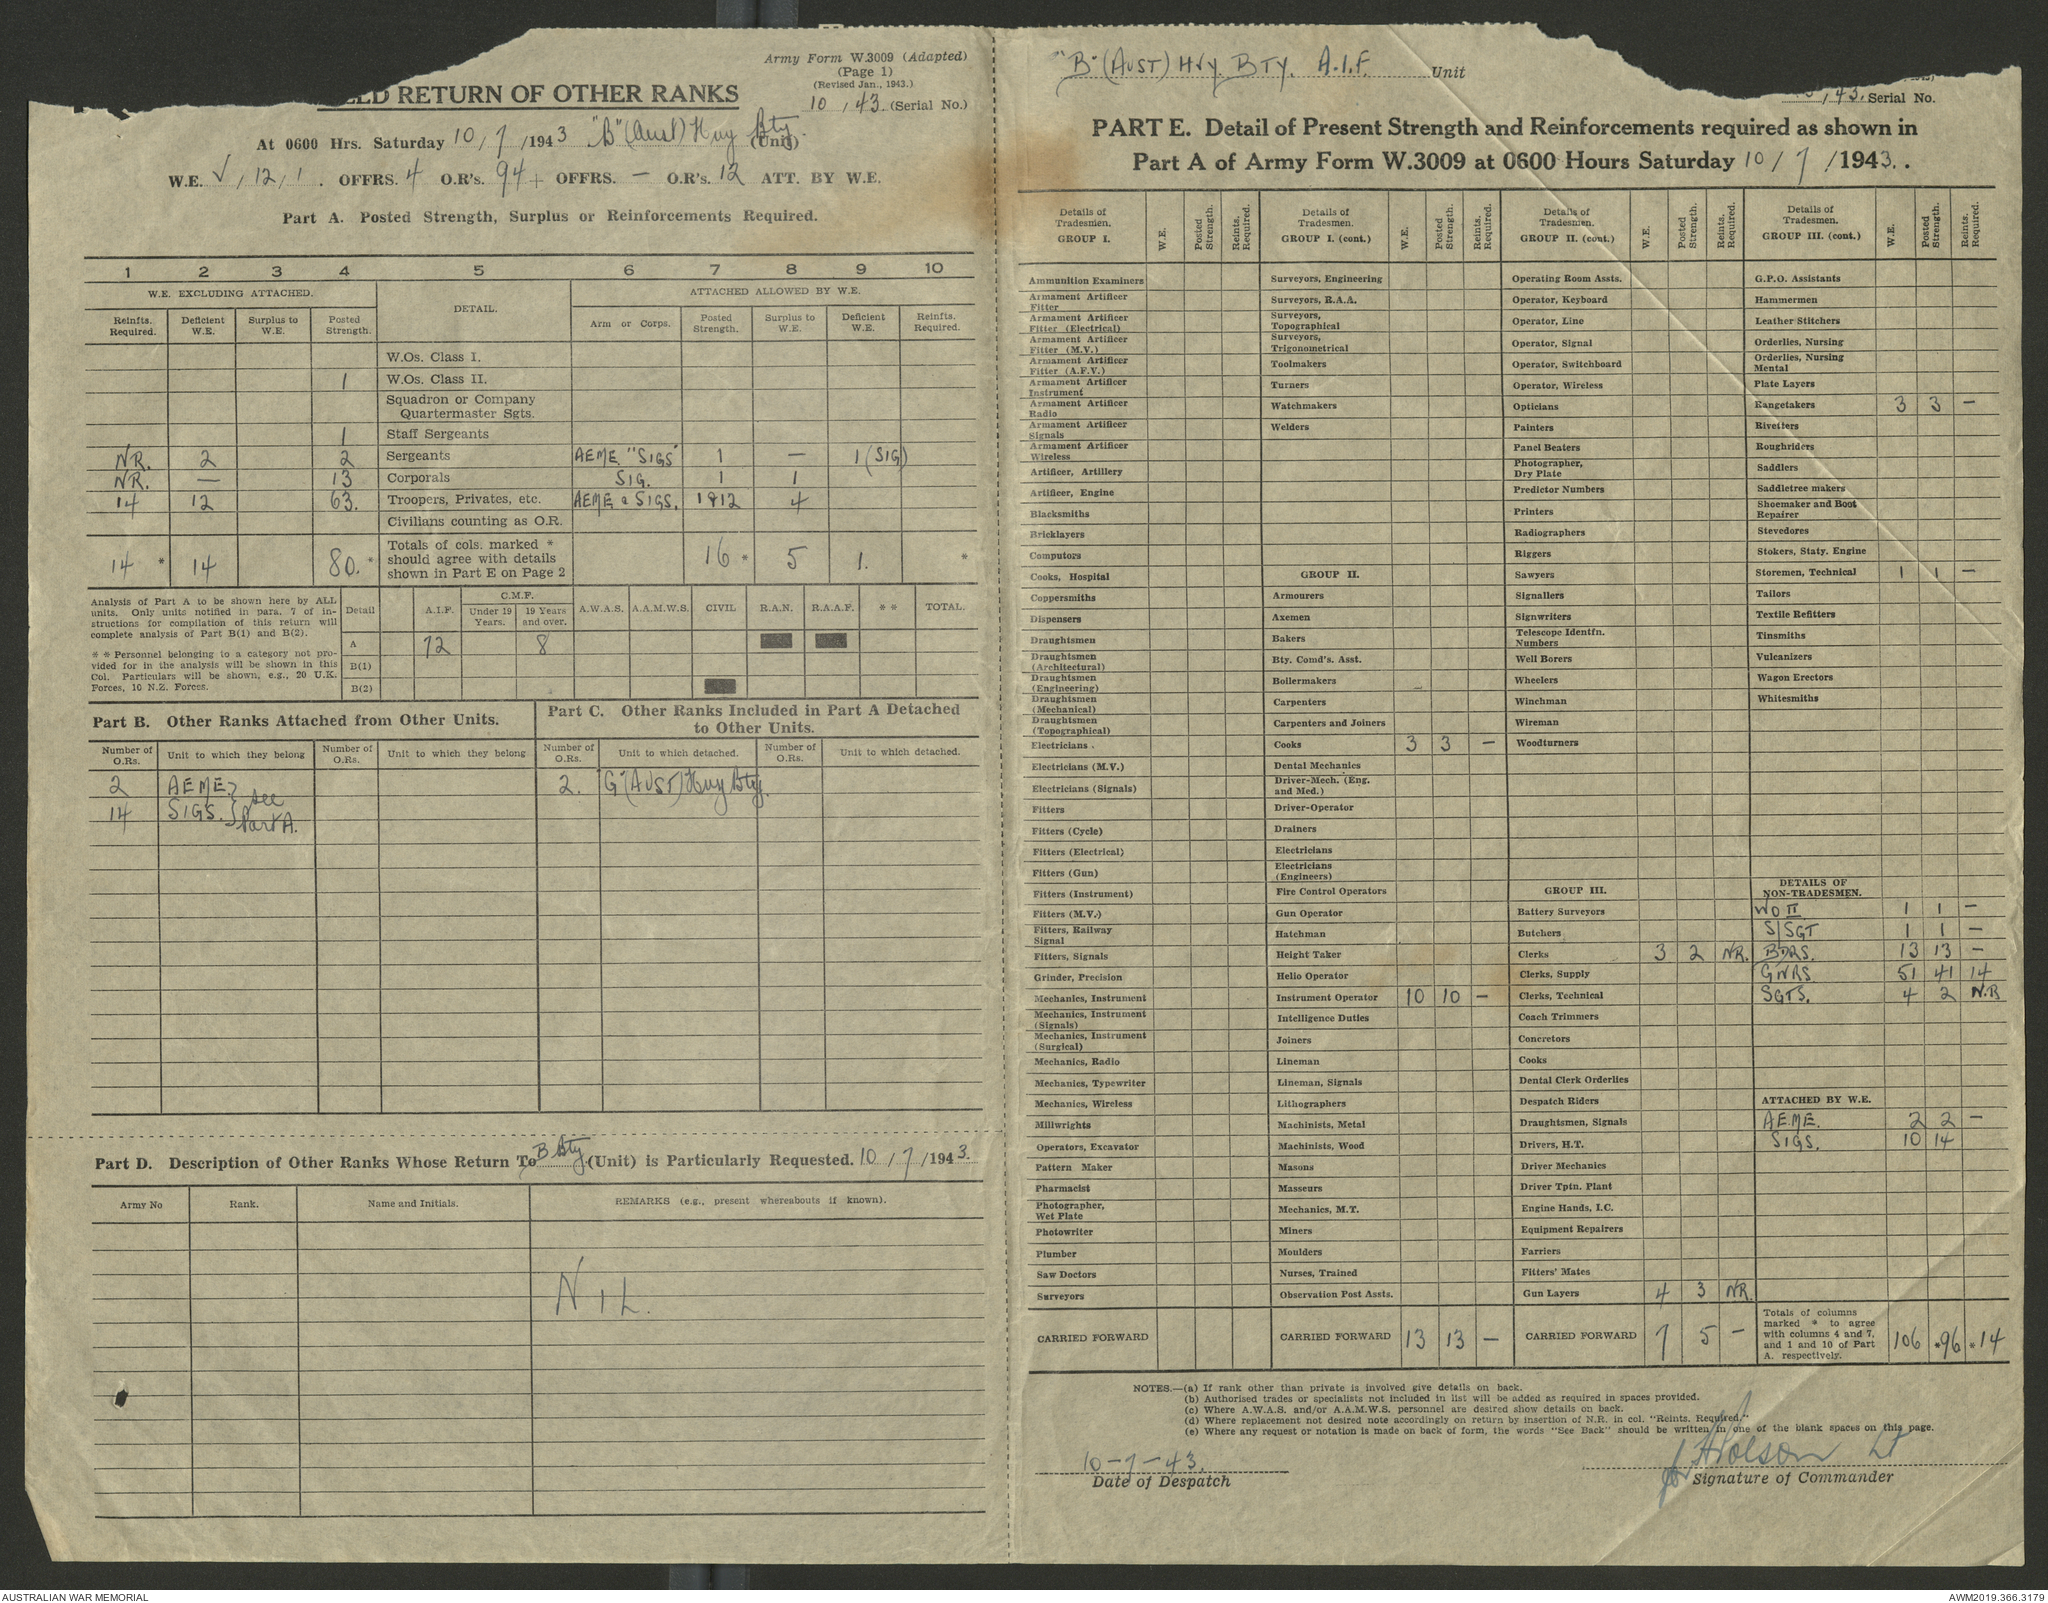 Army Form W.3009 (Adapted)
(Page 1)
(Revised Jan., 1943.)
10, 43. (Serial No.)
RETURN OF OTHER RANKS
At 0600 Hrs. Saturday 10/7/1943 "B" (Aust) Hvy Bty. (Unit)
W.E. V, 12, 1. OFFRS. 4 O.R's. 94 + OFFRS. — O.R's. 12 ATT. BY W.E.
Part A. Posted Strength, Surplus or Reinforcements Required.
1 2 3 4 5 6 7 8 9 10
W.E. EXCLUDING ATTACHED. DETAIL. ATTACHED ALLOWED BY W.E.
Reinfts. Required. Deficient W.E. Surplus to W.E. Posted Strength. Arm or Corps. Posted Strength. Surplus to W.E. Deficient W.E. Reinfts. Required.
W.Os. Class I.
1 W.Os. Class II.
Squadron or Company
Quartermaster Sgts.
1 Staff Sergeants
NR. 2 2 Sergeants AEME "SIGS" 1 — 1 (SIG)
NR. — 13 Corporals SIG. 1 1
14 12 63. Troopers, Privates, etc. AEME & SIGS. 1912 4
Civilians counting as O.R.
14 * 14 80. * Totals of cols. marked * should agree with details shown in Part E on Page 2 16 * 5 1. *
Analysis of Part A to be shown here by ALL
units. Only units notified in para. 7 of in-
structions for compilation of this return will
complete analysis of Part B(1) and B(2).
* * Personnel belonging to a category not pro-
vided for in the analysis will be shown in this
Col. Particulars will be shown, e.g., 20 U.K.
Forces, 10 N.Z. Forces.
Detail A.I.F. C.M.F. Under 19 Years. 19 Years and over. A.W.A.S. A.A.M.W.S. CIVIL R.A.N. R.A.A.F. * * TOTAL.
A 72 8
B(1)
B(2)
Part B. Other Ranks Attached from Other Units.
Part C. Other Ranks Included in Part A Detached
to Other Units.
Number of O.Rs. Unit to which they belong Number of O.Rs. Unit to which they belong Number of O.Rs. Unit to which detached. Number of O.Rs. Unit to which detached.
2 AEME. 2. "G" (AUST) Hvy Bty.
14 SIGS. } see Part A.
Part D. Description of Other Ranks Whose Return To B Bty (Unit) is Particularly Requested. 10/7/1943.
Army No Rank. Name and Initials. REMARKS (e.g., present whereabouts if known).
NIL.
"B" (AUST) HVY. BTY. A.I.F. Unit
, 43. Serial No.
PART E. Detail of Present Strength and Reinforcements required as shown in
Part A of Army Form W.3009 at 0600 Hours Saturday 10/7/1943..
Details of Tradesmen. GROUP I. W.E. Posted Strength. Reints. Required.
Ammunition Examiners
Armament Artificer Fitter
Armament Artificer Fitter (Electrical)
Armament Artificer Fitter (M.V.)
Armament Artificer Fitter (A.F.V.)
Armament Artificer Instrument
Armament Artificer Radio
Armament Artificer Signals
Armament Artificer Wireless
Artificer, Artillery
Artificer, Engine
Blacksmiths
Bricklayers
Computors
Cooks, Hospital
Coppersmiths
Dispensers
Draughtsmen
Draughtsmen (Architectural)
Draughtsmen (Engineering)
Draughtsmen (Mechanical)
Draughtsmen (Topographical)
Electricians .
Electricians (M.V.)
Electricians (Signals)
Fitters
Fitters (Cycle)
Fitters (Electrical)
Fitters (Gun)
Fitters (Instrument)
Fitters (M.V.)
Fitters, Railway Signal
Fitters, Signals
Grinder, Precision
Mechanics, Instrument
Mechanics, Instrument (Signals)
Mechanics, Instrument (Surgical)
Mechanics, Radio
Mechanics, Typewriter
Mechanics, Wireless
Millwrights
Operators, Excavator
Pattern Maker
Pharmacist
Photographer, Wet Plate
Photowriter
Plumber
Saw Doctors
Surveyors
CARRIED FORWARD
Details of Tradesmen. GROUP I. (cont.) W.E. Posted Strength. Reints. Required.
Surveyors, Engineering
Surveyors, R.A.A.
Surveyors, Topographical
Surveyors, Trigonometrical
Toolmakers
Turners
Watchmakers
Welders
GROUP II.
Armourers
Axemen
Bakers
Bty. Comd's. Asst.
Boilermakers
Carpenters
Carpenters and Joiners
Cooks 3 3 —
Dental Mechanics
Driver-Mech. (Eng. and Med.)
Driver-Operator
Drainers
Electricians
Electricians (Engineers)
Fire Control Operators
Gun Operator
Hatchman
Height Taker
Helio Operator
Instrument Operator 10 10 —
Intelligence Duties
Joiners
Lineman
Lineman, Signals
Lithographers
Machinists, Metal
Machinists, Wood
Masons
Masseurs
Mechanics, M.T.
Miners
Moulders
Nurses, Trained
Observation Post Assts.
CARRIED FORWARD 13 13 —
Details of Tradesmen. GROUP II. (cont.) W.E. Posted Strength. Reints. Required.
Operating Room Assts.
Operator, Keyboard
Operator, Line
Operator, Signal
Operator, Switchboard
Operator, Wireless
Opticians
Painters
Panel Beaters
Photographer, Dry Plate
Predictor Numbers
Printers
Radiographers
Riggers
Sawyers
Signallers
Signwriters
Telescope Identfn. Numbers
Well Borers
Wheelers
Winchman
Wireman
Woodturners
GROUP III.
Battery Surveyors
Butchers
Clerks 3 2 NR.
Clerks, Supply
Clerks, Technical
Coach Trimmers
Concretors
Cooks
Dental Clerk Orderlies
Despatch Riders
Draughtsmen, Signals
Drivers, H.T.
Driver Mechanics
Driver Tptn. Plant
Engine Hands, I.C.
Equipment Repairers
Farriers
Fitters' Mates
Gun Layers 4 3 NR.
CARRIED FORWARD 7 5 —
Details of Tradesmen. GROUP III. (cont.) W.E. Posted Strength. Reints. Required.
G.P.O. Assistants
Hammermen
Leather Stitchers
Orderlies, Nursing
Orderlies, Nursing Mental
Plate Layers
Rangetakers 3 3 —
Rivetters
Roughriders
Saddlers
Saddletree makers
Shoemaker and Boot Repairer
Stevedores
Stokers, Staty. Engine
Storemen, Technical 1 1 —
Tailors
Textile Refitters
Tinsmiths
Vulcanizers
Wagon Erectors
Whitesmiths
DETAILS OF NON-TRADESMEN.
WO II 1 1 —
S/SGT 1 1 —
BDRS. 13 13 —
GNRS 51 41 14
SGTS. 4 2 N.R
ATTACHED BY W.E.
AEME. 2 2 —
SIGS. 10 14
Totals of columns marked * to agree with columns 4 and 7, and 1 and 10 of Part A. respectively. 106 *96 *14
NOTES.—(a) If rank other than private is involved give details on back.
(b) Authorised trades or specialists not included in list will be added as required in spaces provided.
(c) Where A.W.A.S. and/or A.A.M.W.S. personnel are desired show details on back.
(d) Where replacement not desired note accordingly on return by insertion of N.R. in col. "Reints. Required."
(e) Where any request or notation is made on back of form, the words "See Back" should be written in one of the blank spaces on this page.
10-7-43.
Date of Despatch
for Lt
Signature of Commander
AUSTRALIAN WAR MEMORIAL
AWM2019.366.3179